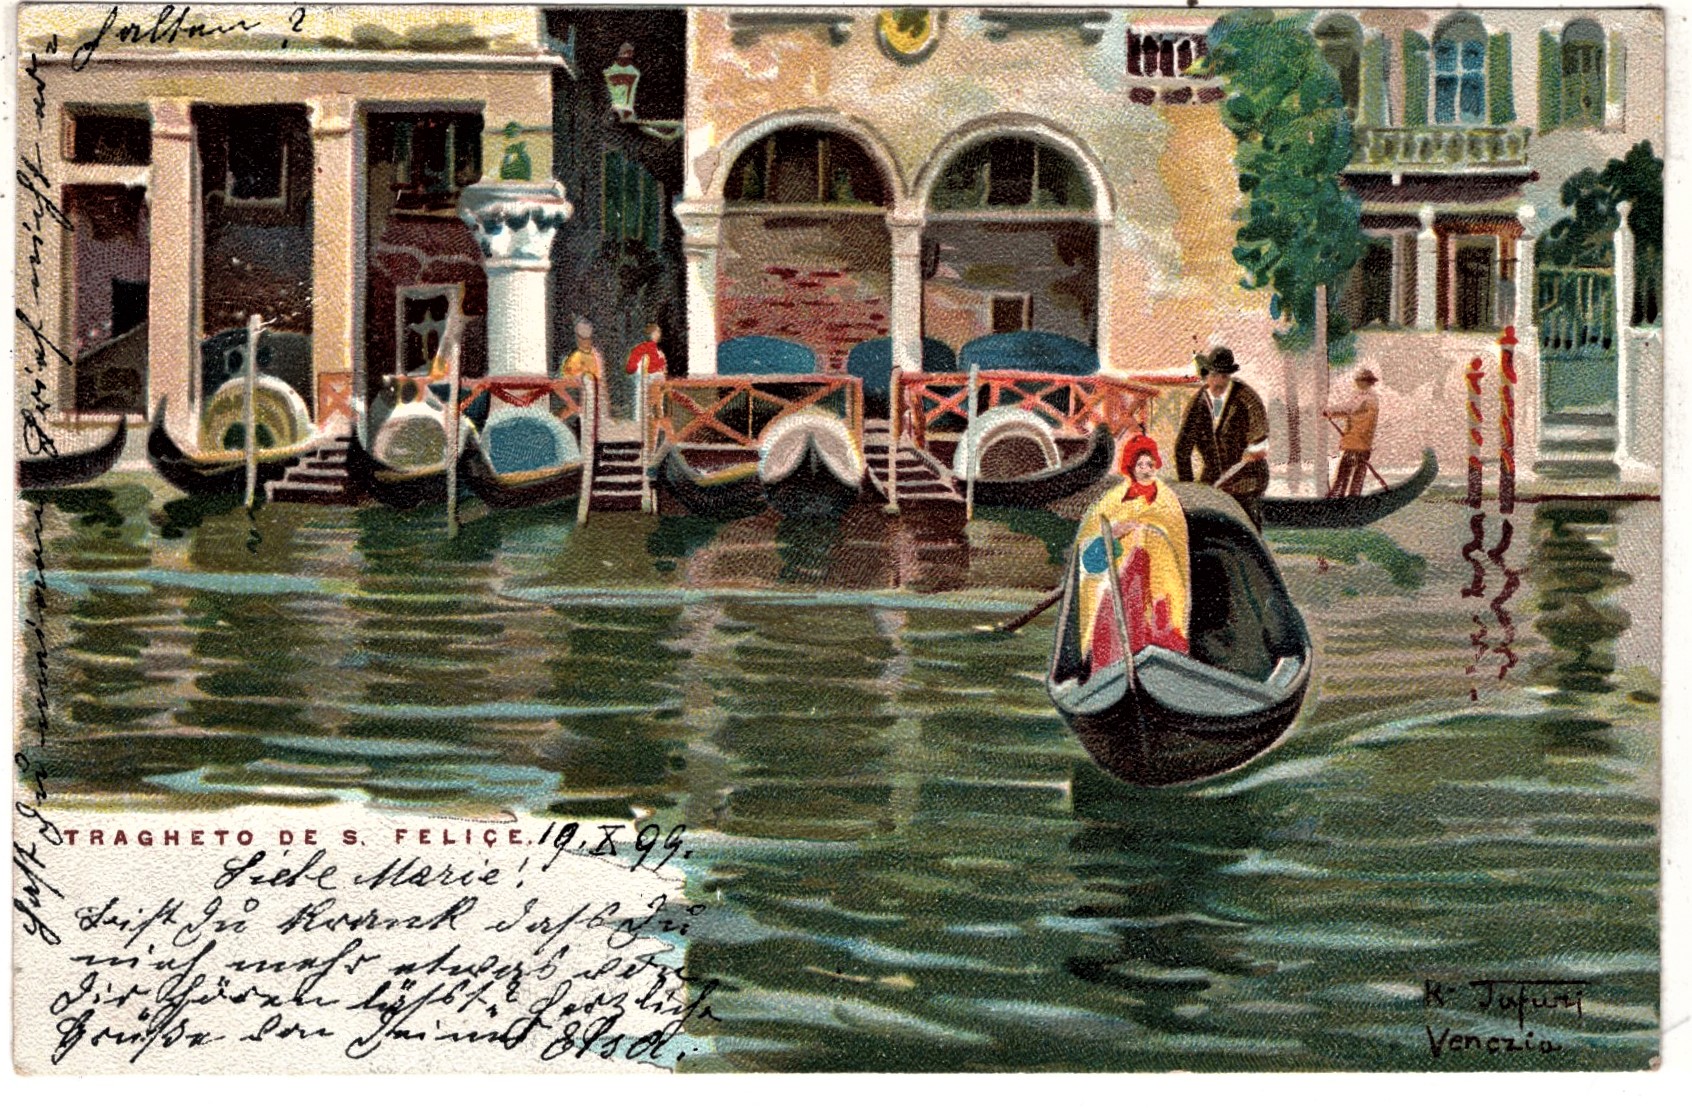 TRAGHETO DE S. FELIÇE.
19. X 99.
Liebe Marie!
Bist Du krank dass Du
nich mehr etwas von
Dir hören lässt? Herzliche
Grüße von Deiner Elsa.
Hast Du meinen Brief nicht er=
halten?
K. Tafuri
Venezia